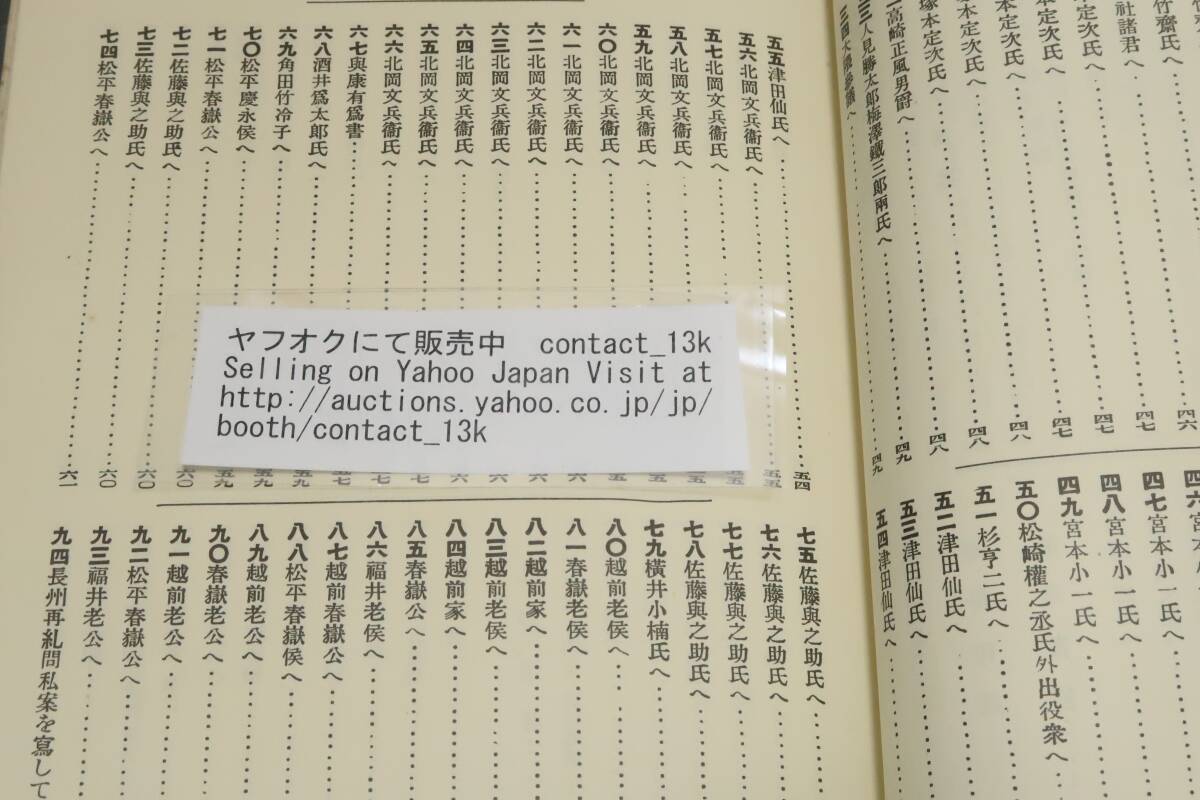 竹齋氏へ
社諸君へ
本定次氏へ
本定次氏へ
本定次氏へ
塚本定次氏へ
高崎正風男爵へ
三三人見勝太郎梅澤鐵三郎兩氏へ
四六
四七
四七
四七
四八
四八
四八
四九
四九
四六宮本小
四七宮本小一氏へ
四八宮本小一氏へ
四九宮本小一氏へ
五〇松崎權之丞氏外出役衆へ
五一杉亨二氏へ
五二津田仙氏へ
五三津田仙氏へ
五四津田仙氏へ
五五津田仙氏へ 五四
五六北岡文兵衞氏へ 五五
五七北岡文兵衞氏へ
五八北岡文兵衞氏へ
五九北岡文兵衞氏へ
六〇北岡文兵衞氏へ
六一北岡文兵衞氏へ
六二北岡文兵衞氏へ
六三北岡文兵衞氏へ
六四北岡文兵衞氏へ
六五北岡文兵衞氏へ
六六北岡文兵衞氏へ
六七與康有爲書
六八酒井爲太郎氏へ
六九角田竹冷子へ
七〇松平慶永侯へ
七一松平春嶽公へ
七二佐藤與之助氏へ 六〇
七三佐藤與之助氏へ 六〇
七四松平春嶽公へ 六一
ヤフオクにて販売中 contact_13k
Selling on Yahoo Japan Visit at
http://auctions.yahoo.co.jp/jp/
booth/contact_13k
七五佐藤與之助氏へ
七六佐藤與之助氏へ
七七佐藤與之助氏へ
七八佐藤與之助氏へ
七九橫井小楠氏へ
八〇越前老侯へ
八一春嶽老侯へ
八二越前家へ
八三越前老侯へ
八四越前家へ
八五春嶽公へ
八六福井老侯へ
八七越前春嶽公へ
八八松平春嶽侯へ
八九越前老公へ
九〇春嶽老公へ
九一越前老公へ
九二松平春嶽公へ
九三福井老公へ
九四長州再糺問私案を寫して